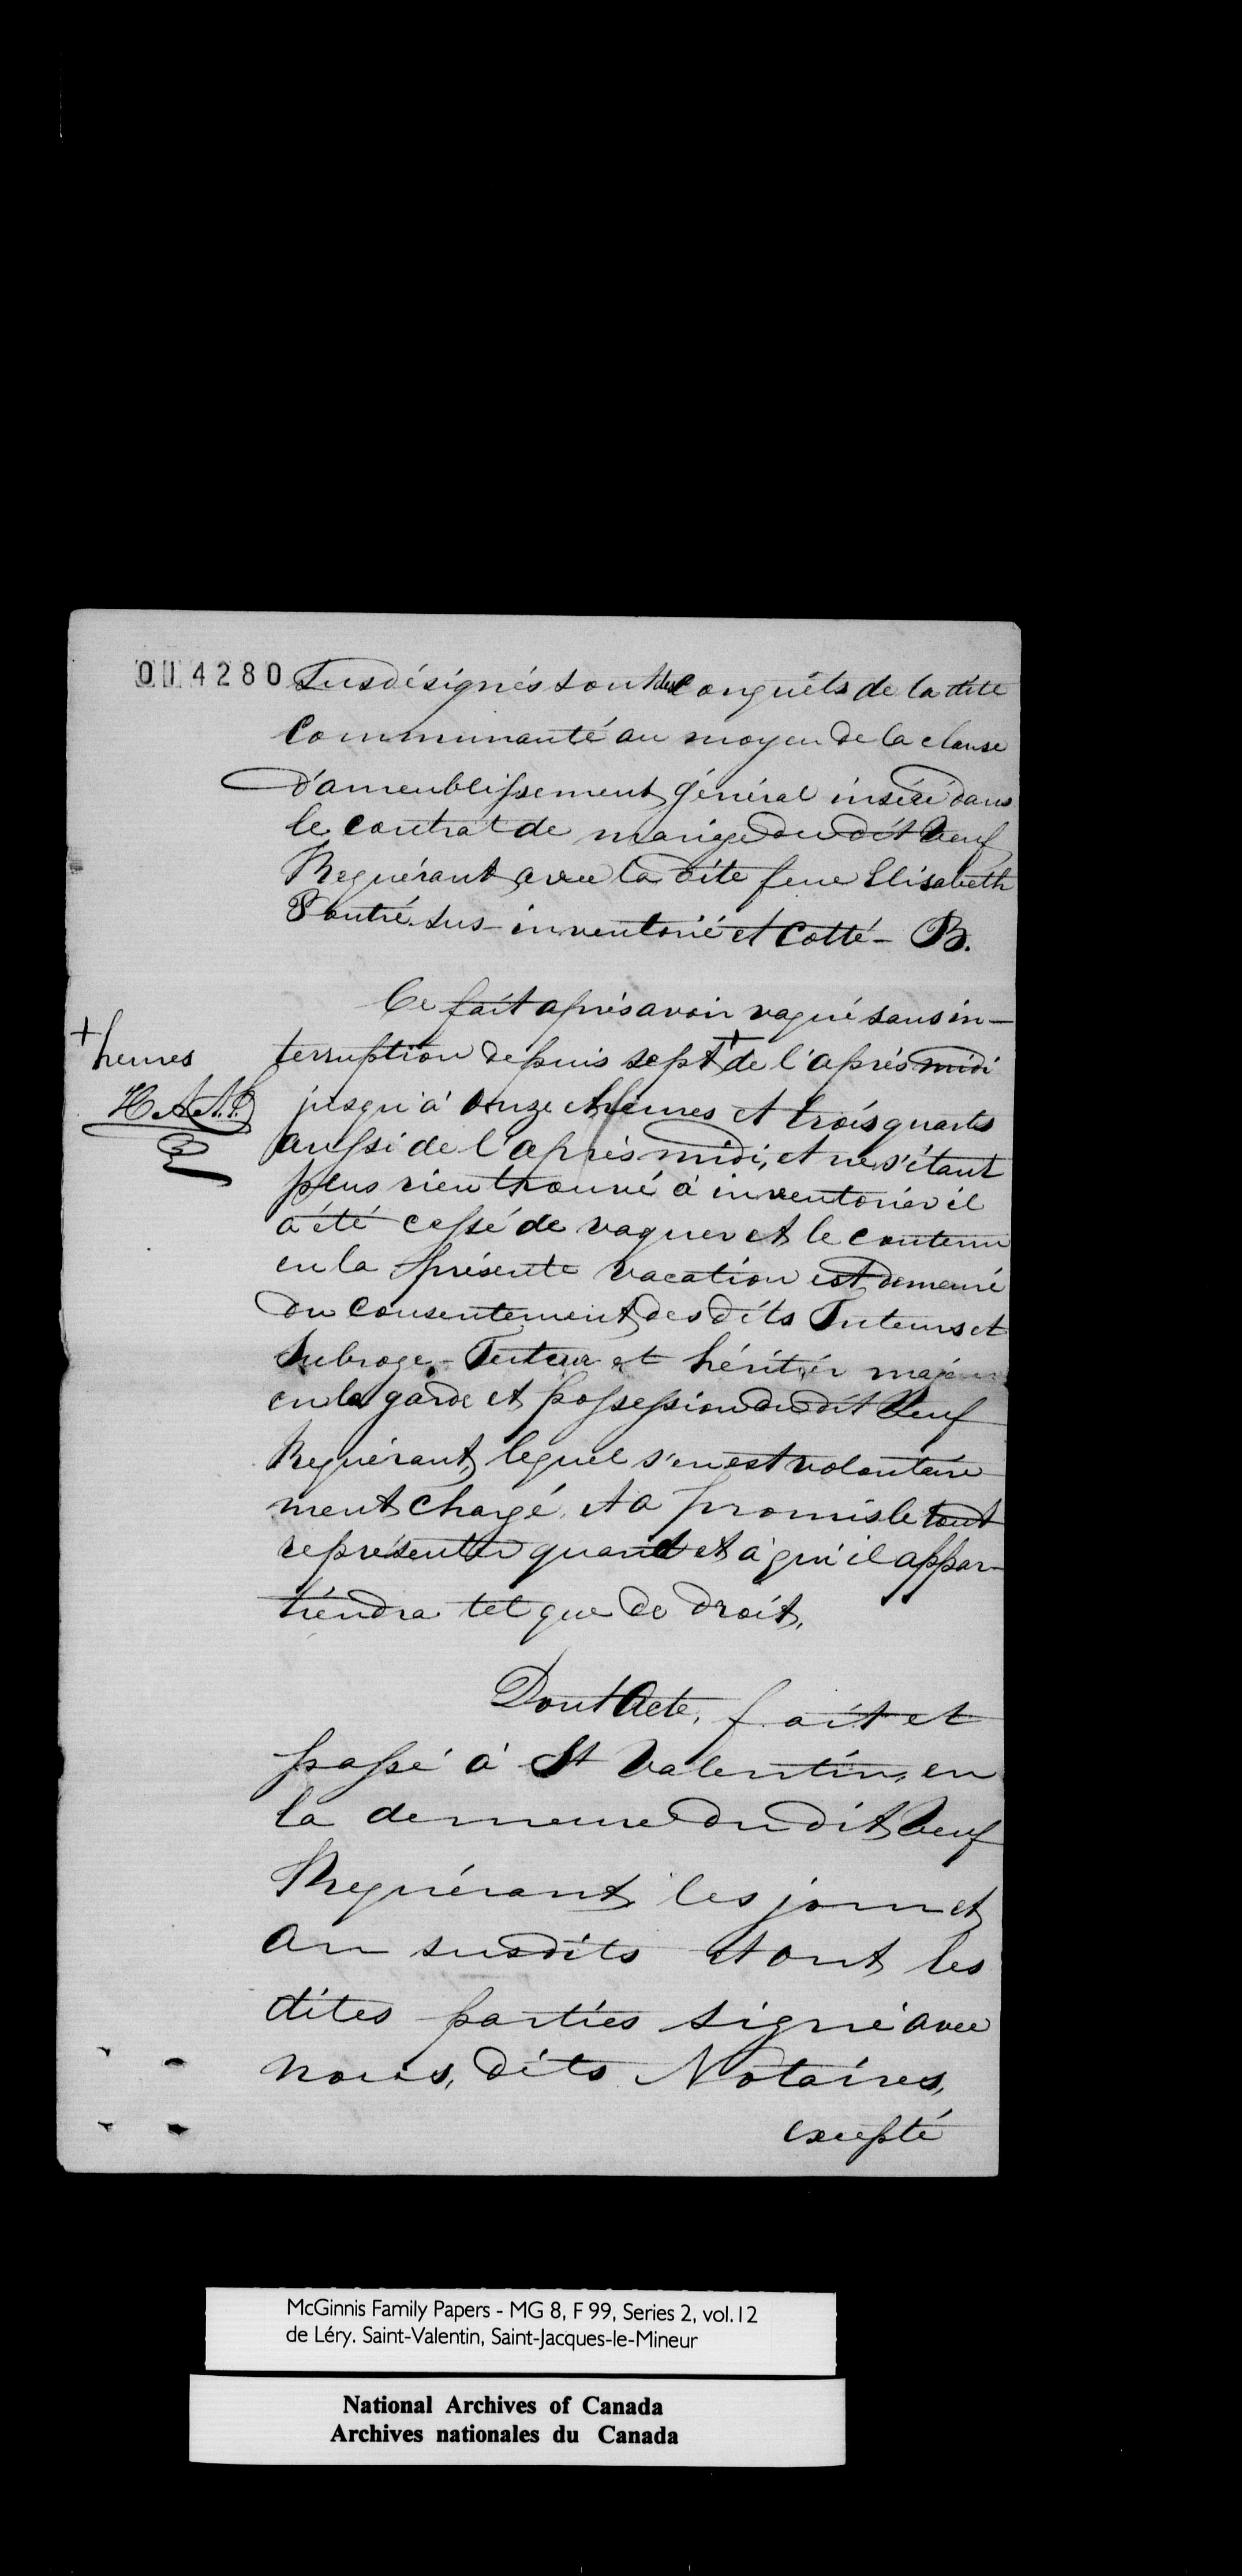 014280
Susdésignés sont des Conquêts de la dite
Communauté au moyen de la clause
d'ameublissement général inséré dans
le contrat de mariage du dit Veuf
Requérant avec la dite feue Elisabeth
sus-inventorié et Cotté - B.
Ce fait après avoir vaqué sans in-
+
heures
terruption depuis sept + de l'après midi
jusqu'à onze heures et trois quarts
aussi de l'après midi, et ne s'étant
plus rien trouvé à inventorier il
a été cessé de vaquer et le contenu
en la présente vacation est demeuré
du consentement des dits Tuteurs et
Subrogé-Tuteur et héritier majeur
en la garde et possession du dit Veuf
Requérant, lequel s'en est volontaire
ment chargé, et a promis le tout
représenter quand et à qui il appar-
tiendra tel que de droit.
Dont Acte, fait et
passé à St Valentin, en
la demeure du dit Veuf
Requérant les jour et
an susdits et ont les
dites parties signé avec
nous, dits Notaires,
excepté
McGinnis Family Papers - MG 8, F 99, Series 2, vol.12
de Léry. Saint-Valentin, Saint-Jacques-le-Mineur
National Archives of Canada
Archives nationales du Canada